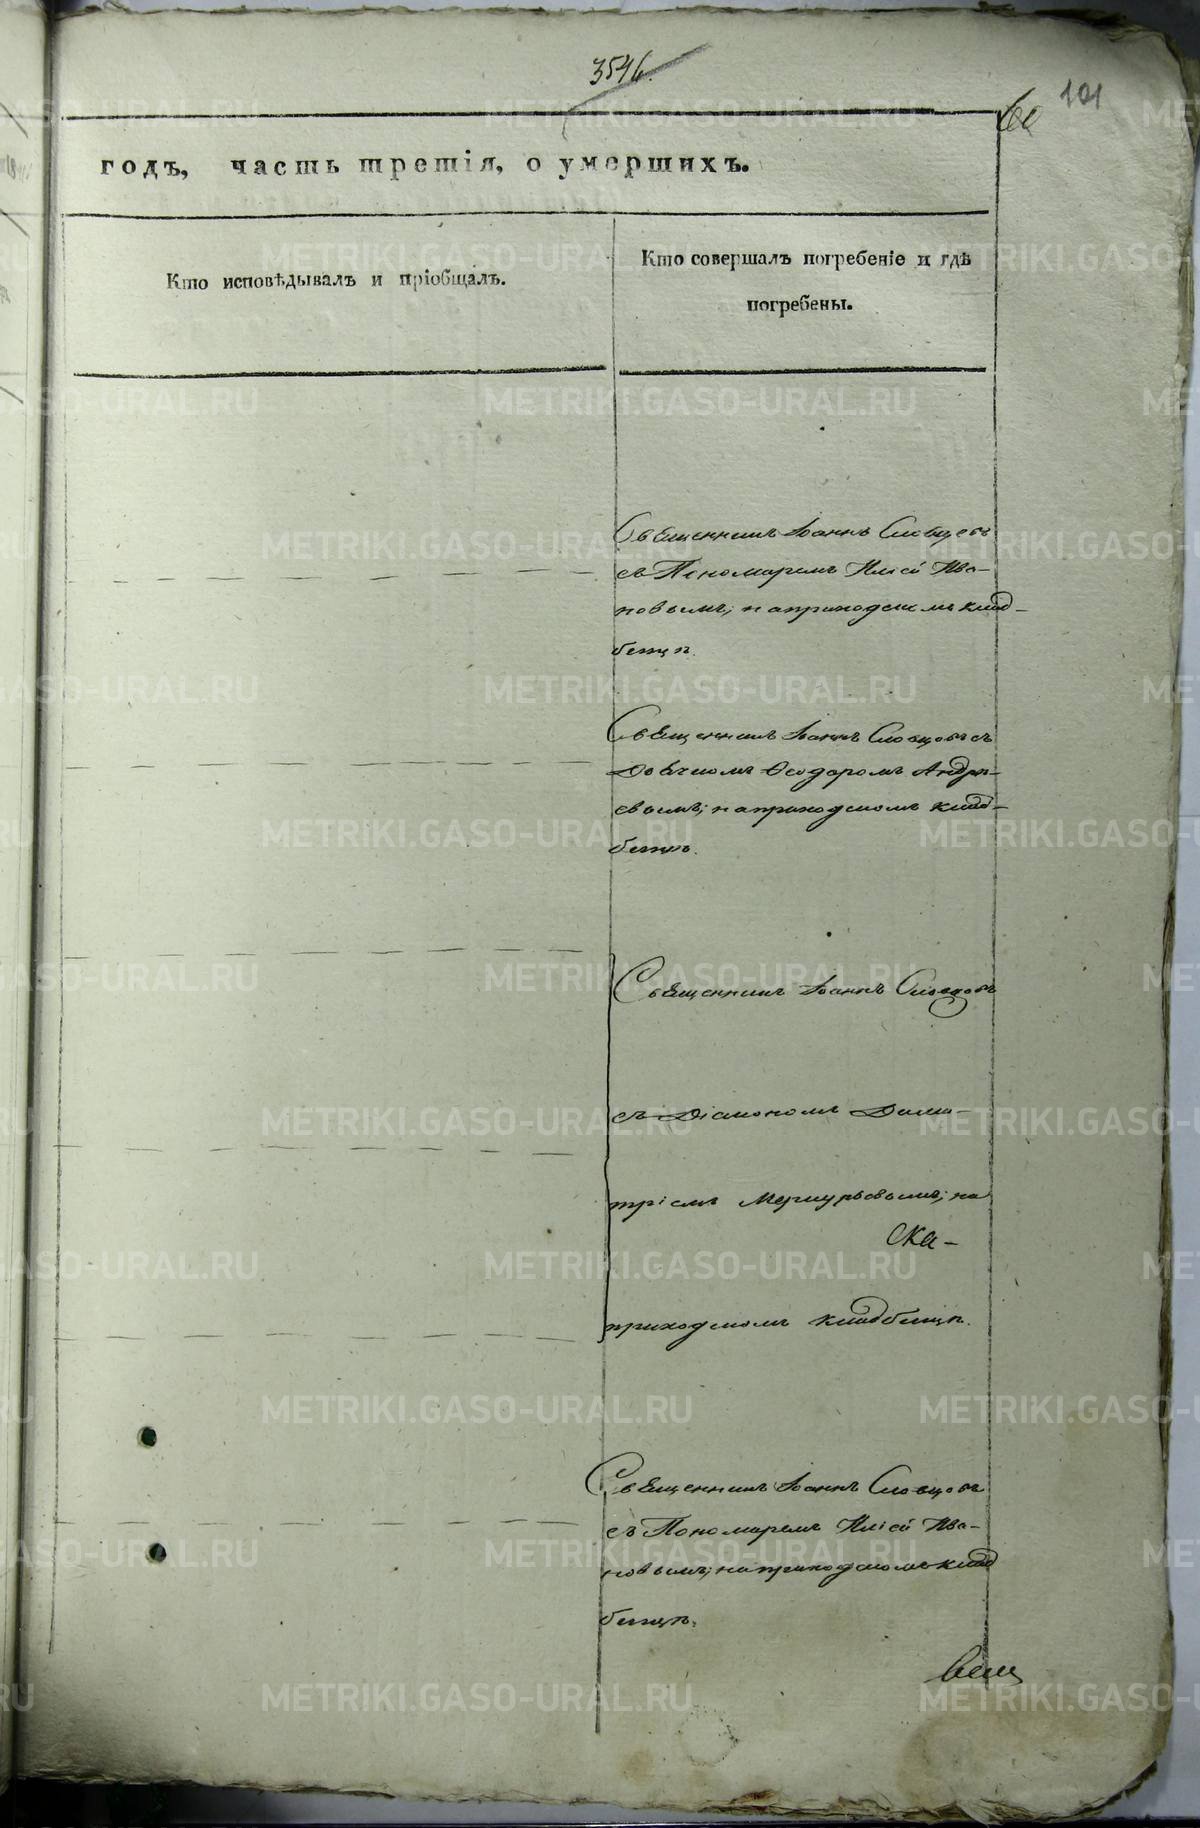 3546.
101
годъ, часть третія, о умершихъ.
Кто исповѣдывалъ и пріобщалъ.
Кто совершалъ погребеніе и гдѣ
погребены.
Священникъ Іоаннъ Словцовъ
съ Пономаремъ Иліей Ива-
новымъ; на приходскомъ клад-
бищѣ.
Священникъ Іоаннъ Словцовъ съ
Дьячкомъ Ѳеодоромъ Андре-
евымъ; на приходскомъ клад-
бищѣ.
Священникъ Іоаннъ Словцовъ
съ Діакономъ Дими-
тріемъ Меркурьевымъ; на
Ска-
приходскомъ кладбищѣ.
Священникъ Іоаннъ Словцовъ
съ Пономаремъ Иліей Ива-
новымъ; на приходскомъ клад
бищѣ.
METRIKI.GASO-URAL.RU